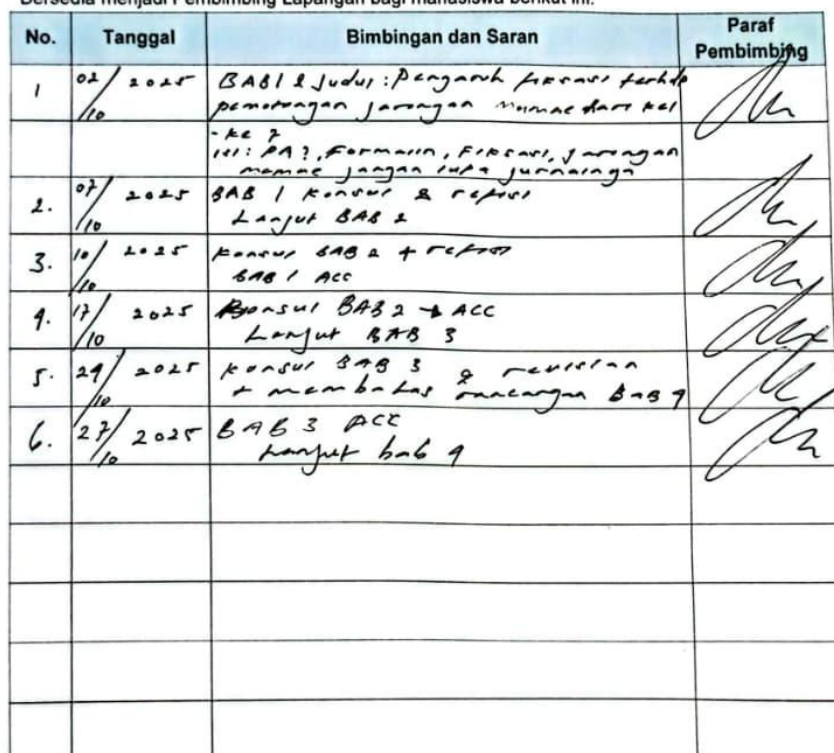 Bersedia menjadi Pembimbing Lapangan bagi mahasiswa berikut ini.
No. Tanggal Bimbingan dan Saran Paraf Pembimbing
1 02/10 2025 BAB 1 & Judul : Pengaruh fiksasi terhdp
pemotongan jaringan mamae dari hari
- ke 7
isi : PA?, Formalin, Fiksasi, jaringan
mamae jangan lupa jurnalnya
2. 07/10 2025 BAB 1 konsul & refisi
Lanjut BAB 2
3. 10/10 2025 konsul BAB 2 + refisi
BAB 1 ACC
4. 17/10 2025 Konsul BAB 2 → ACC
Lanjut BAB 3
5. 24/10 2025 konsul BAB 3 & revisian
+ membahas rancangan BAB 4
6. 27/10 2025 BAB 3 ACC
Lanjut bab 4